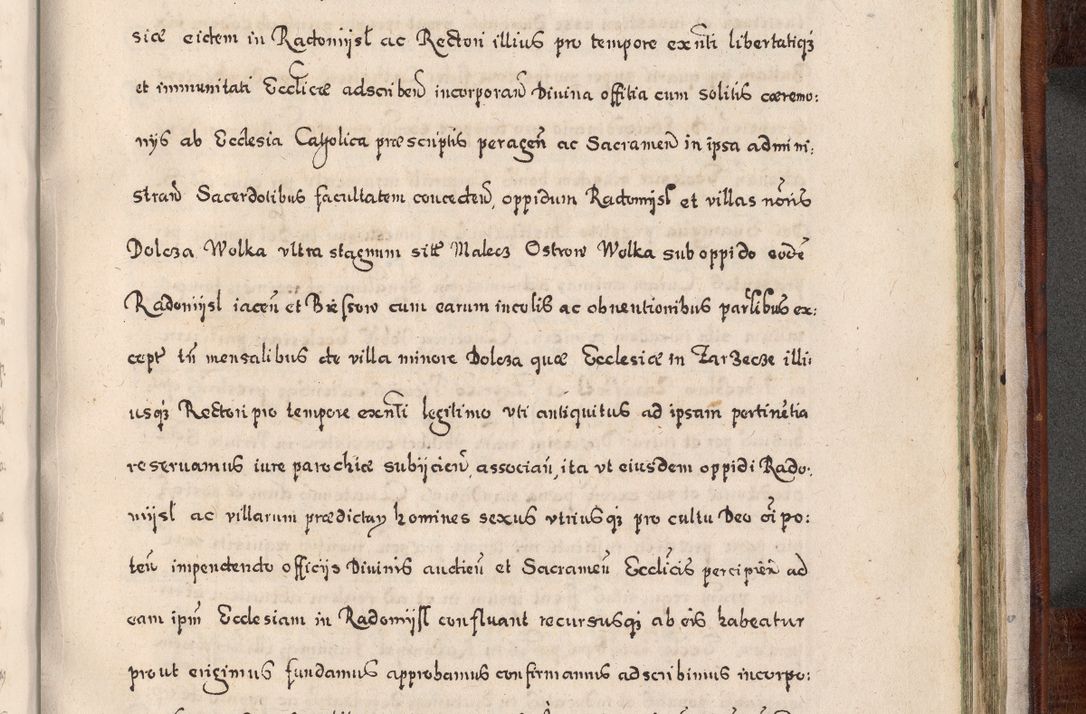 siæ eidem in Radomijsl ac Rectori illius pro tempore exñti libertatiq́ꝫ
et immunitati Ecclicæ adscribeñ incorporañ Divina offitia cum solitis cæremo:
nijs ab Ecclesia Catholica præscriptis peragẽn ac Sacrameñ in ipsa admini:
strañ Sacerdotibus facultatem concedeñ, oppidum Radomijsl et villas nr̃is
Dolcza Wolka vltra stagnum sitt Malecz Ostrow Wolka sub oppido eodẽ
Radomijsl iaceñ et Bressow cum earum incolis ac obuentionibus parĩlibus ex:
cept tñ mensalibus de villa minore Dolcza quæ Ecclesiæ in Zarzecze illi:
usq́ꝫ Rectori pro tempore exñti legitimo vti antiquitus ad ipsam pertinẽtia
reseruamus iure parochiæ subijcieñ, associañ, ita vt eiusdem oppidi Rado:
mijsl ac villarum prædictaꝝ homines sexus vtriusq́ꝫ pro cultu Deo oĩpo:
teñ impendendo officijs Divinis audieñ et Sacrameñ Ecclicis percipieñ ad
eam ipm̃ Ecclesiam in Radomijsl confluant recursusq́ꝫ ab eis habeatur
prout erigimus fundamus approbamus confirmamus adscribimus incorpo: